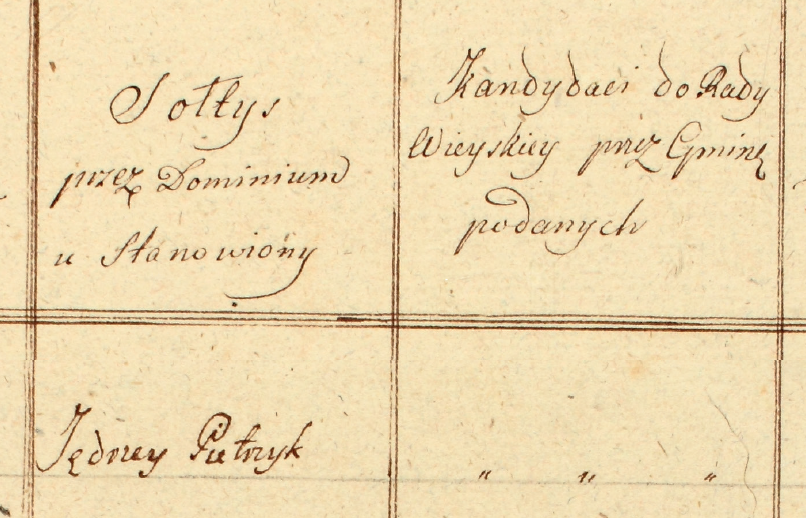 Sołtys
przez Dominium
u stanowiony
Kandydaci do Rady
Wieyskiey przez Gminę
podanych
Jędrzey Pietrzyk
" " "